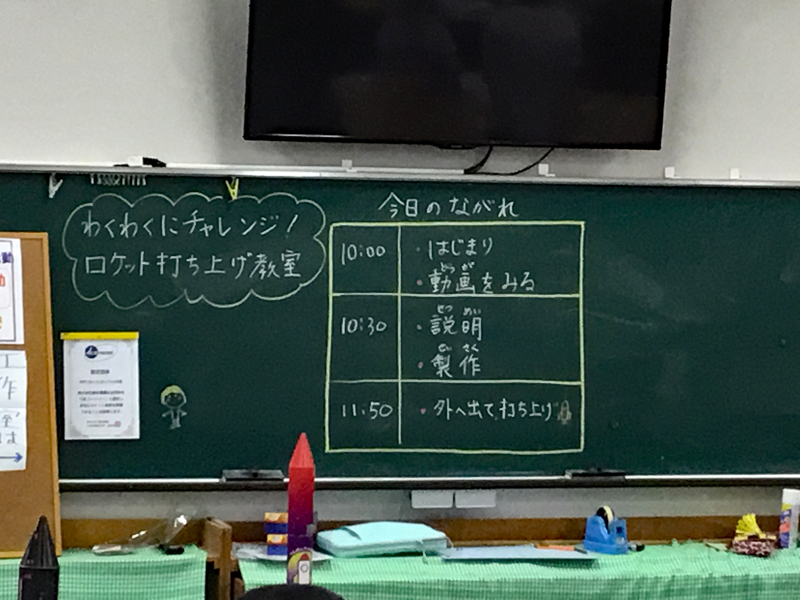 わくわくにチャレンジ!
ロケット打ち上げ教室
今日のながれ
10:00
・はじまり
どう が
・動画をみる
10:30
せつ めい
・説明
せい さく
・製作
11:50
・外へ出て打ち上げ
作
室
は